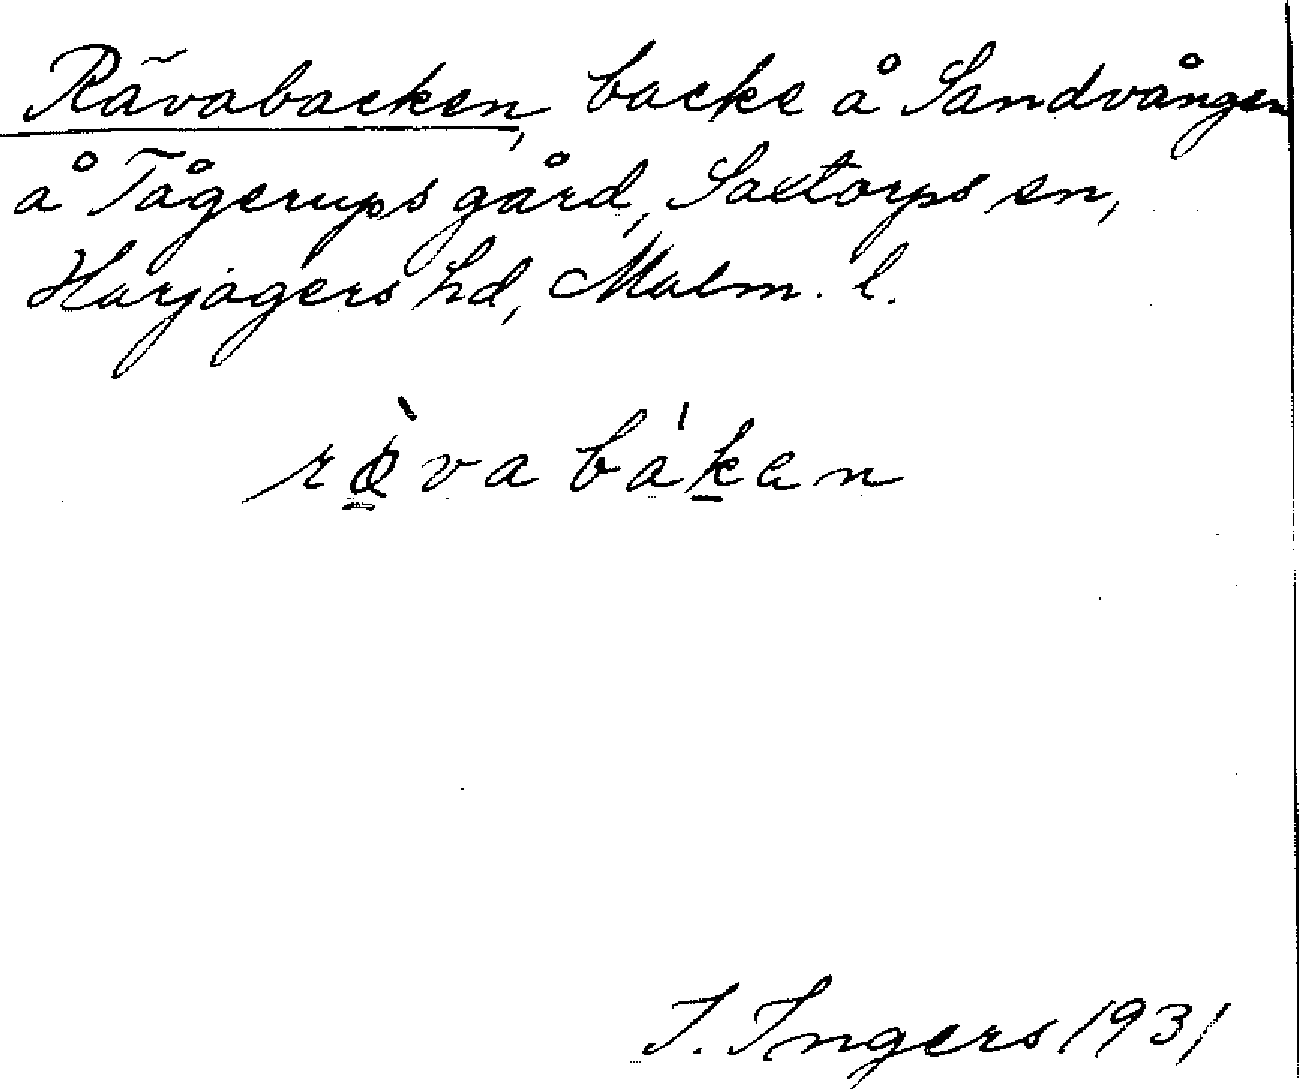 Rävabacken, backe å Sandvången
å Tågerups gård, Saxtorps sn,
Harjagers hd, Malm. l.
rø̀va bákan
I. Ingers 1931